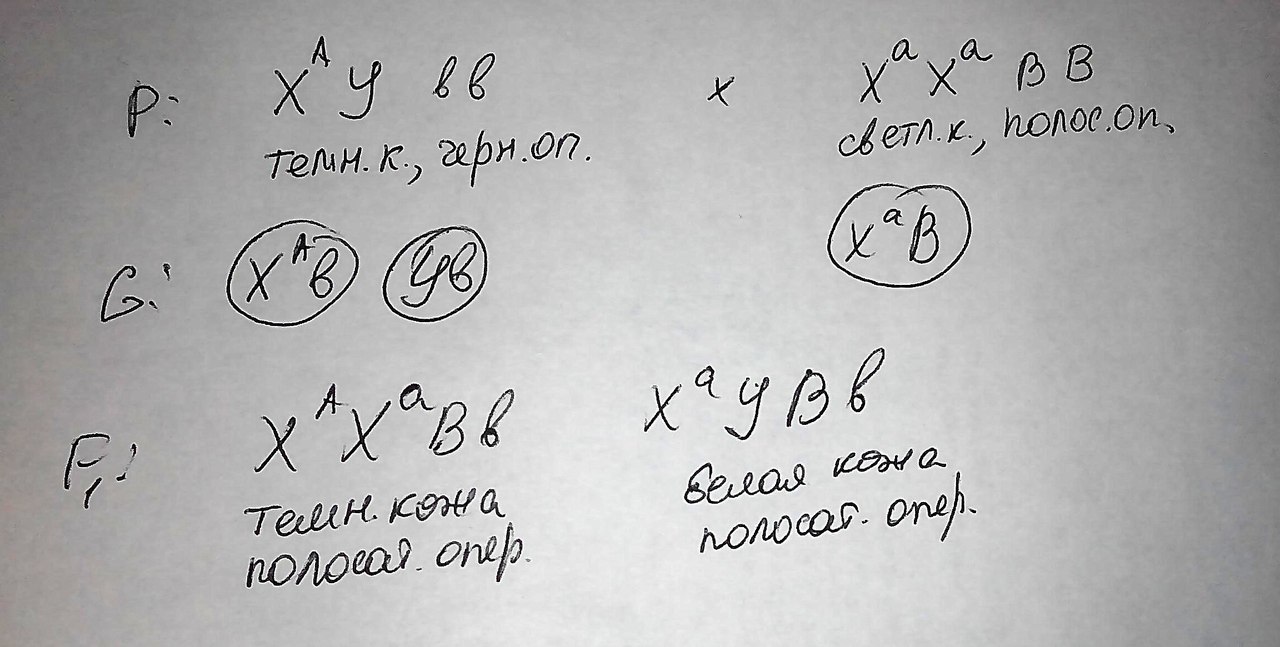 P: XᴬУ вв × XᵃXᵃ ВВ
темн.к., черн.оп. светл.к., полос.оп.
G: XᴬВ Ув XᵃВ
F₁: XᴬXᵃВв XᵃУВв
темн. кожа белая кожа
полосат. опер. полосат. опер.